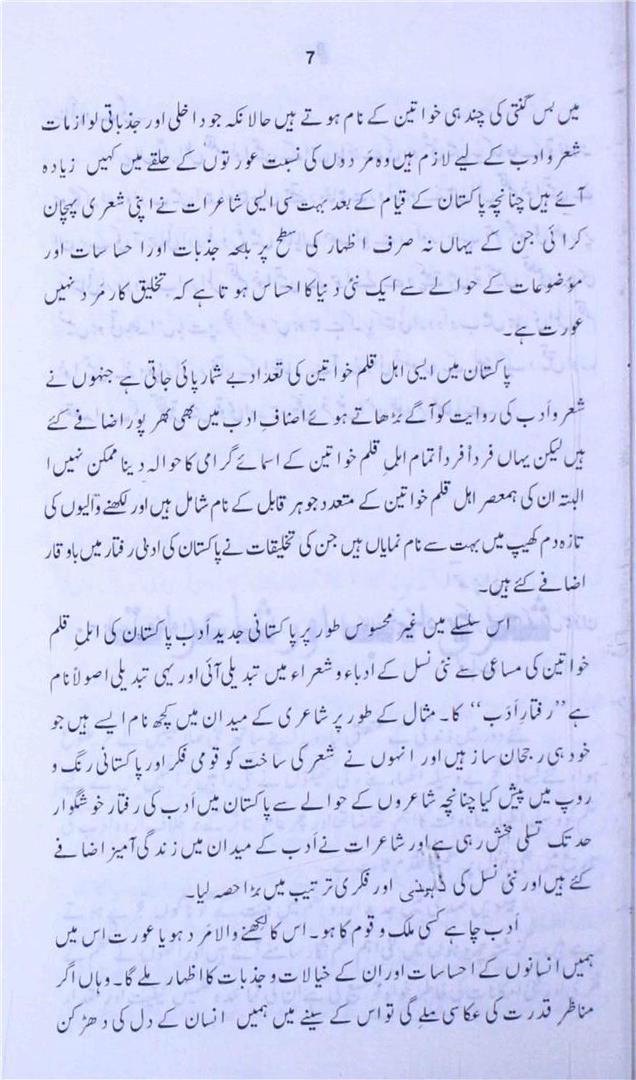 7
میں بس گنتی کی چند ہی خواتین کے نام ہوتے ہیں حالانکہ جو داخلی اور جذباتی لوازمات
شعر و ادب کے لیے لازم ہیں وہ مَردوں کی نسبت عورتوں کے حلقے میں کہیں زیادہ
آئے ہیں چنانچہ پاکستان کے قیام کے بعد بہت سی ایسی شاعرات نے اپنی شعری پہچان
کرائی جن کے یہاں نہ صرف اظہار کی سطح پر بلکہ جذبات اور احساسات اور
موضوعات کے حوالے سے ایک نئی دنیا کا احساس ہوتا ہے کہ تخلیق کار مرد نہیں
عورت ہے۔
پاکستان میں ایسی اہل قلم خواتین کی تعداد بے شمار پائی جاتی ہے جنہوں نے
شعر و اَدب کی روایت کو آگے بڑھاتے ہوئے اصنافِ ادب میں بھی بھرپور اضافے کئے
ہیں لیکن یہاں فرداً فرداً تمام اہلِ قلم خواتین کے اسمائے گرامی کا حوالہ دینا ممکن نہیں!
البتہ ان کی ہمعصر اہل قلم خواتین کے متعدد جوہر قابل کے نام شامل ہیں اور لکھنے والیوں کی
تازہ دم کھیپ میں بہت سے نام نمایاں ہیں جن کی تخلیقات نے پاکستان کی ادبی رفتار میں باوقار
اضافے کئے ہیں۔
اس سلسلے میں غیر محسوس طور پر پاکستانی جدید اَدب پاکستان کی اہلِ قلم
خواتین کی مساعی سے نئی نسل کے اُدباء و شعراء میں تبدیلی آئی اور یہی تبدیلی اصولاً نام
ہے ’’رفتارِ اَدب‘‘ کا۔ مثال کے طور پر شاعری کے میدان میں کچھ نام ایسے ہیں جو
خود ہی رجحان ساز ہیں اور انہوں نے شعر کی ساخت کو قومی فکر اور پاکستانی رنگ و
روپ میں پیش کیا چنانچہ شاعروں کے حوالے سے پاکستان میں اَدب کی رفتار خوشگوار
حد تک تسلی بخش رہی ہے اور شاعرات نے اَدب کے میدان میں زندگی آمیز اضافے
کئے ہیں اور نئی نسل کی ذہنی اور فکری ترتیب میں بڑا حصہ لیا۔
اَدب چاہے کسی ملک و قوم کا ہو۔ اس کا لکھنے والا مَرد ہو یا عورت اس میں
ہمیں انسانوں کے احساسات اور ان کے خیالات و جذبات کا اظہار ملے گا۔ وہاں اگر
مناظر قدرت کی عکاسی ملے گی تو اس کے سینے میں ہمیں انسان کے دل کی دھڑکن